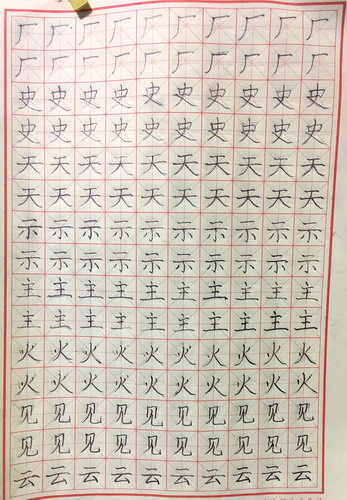 厂厂厂厂厂厂厂厂厂厂
厂厂厂厂厂厂厂厂厂厂
史史史史史史史史史史
史史史史史史史史史史
天天天天天天天天天天
天天天天天天天天天天
示示示示示示示示示示
示示示示示示示示示示
主主主主主主主主主主
主主主主主主主主主主
火火火火火火火火火火
火火火火火火火火火火
见见见见见见见见见见
见见见见见见见见见见
云云云云云云云云云云